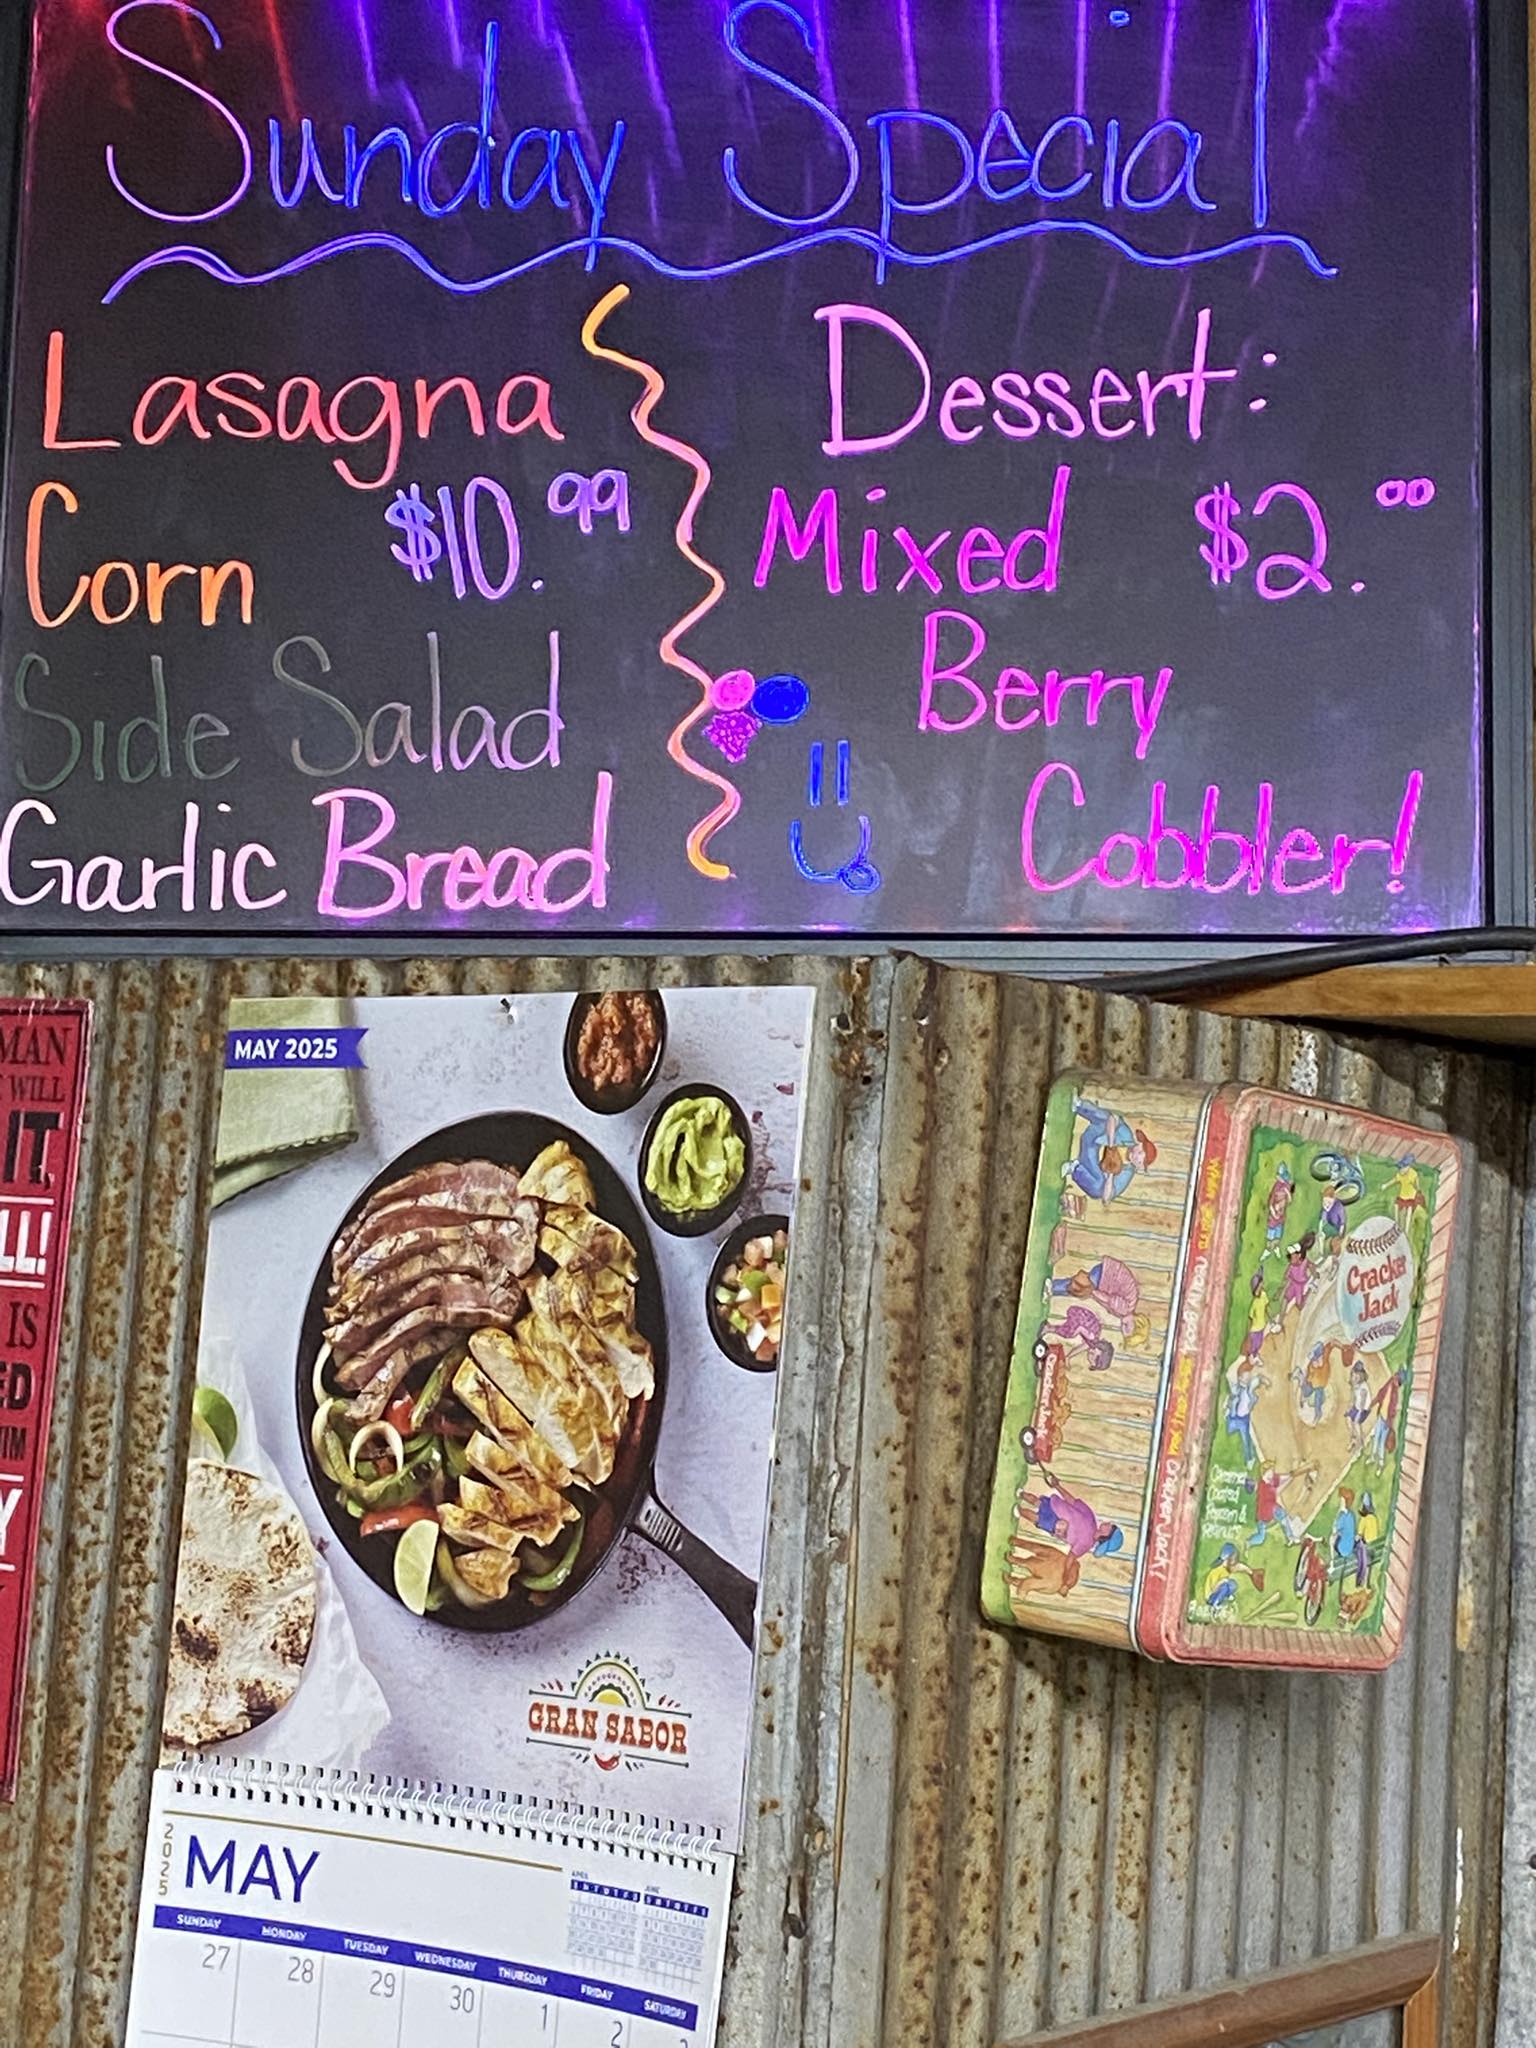 Sunday Special
Lasagna
Corn $10.99
Side Salad
Garlic Bread
Dessert:
Mixed $2.00
Berry
Cobbler!
MAN
WILL
IT,
LL!
IS
ED
IM
Y
MAY 2025
GRAN SABOR
2025
MAY
APRIL
JUNE
SUNDAY MONDAY TUESDAY WEDNESDAY THURSDAY FRIDAY SATURDAY
27 28 29 30 1 2
Cracker
Jack
Caramel
Coated
Popcorn &
Peanuts
Cracker Jack